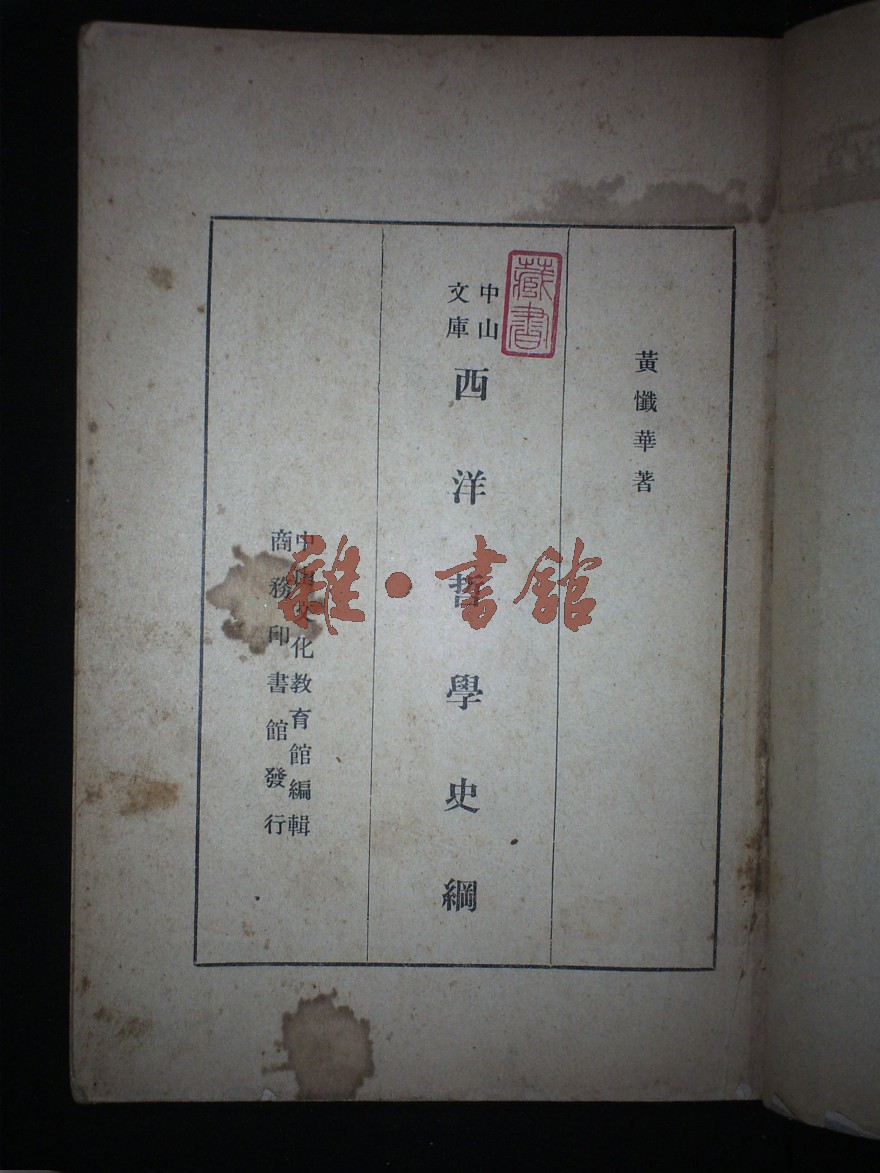 黃懺華著
中山
文庫
西洋哲學史綱
中山文化教育館編輯
商務印書館發行
藏書
雜·書館